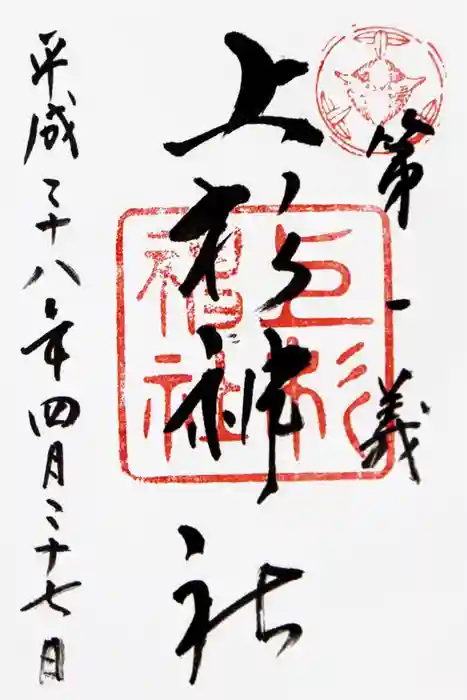 第一義
上杉神社
上杉
神社
平成二十八年四月二十七日